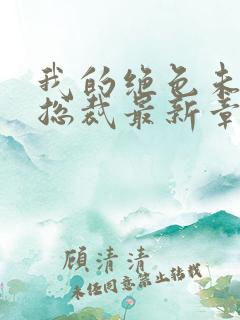 我的绝色未
总裁最新章
顾清清
未经同意禁止转载